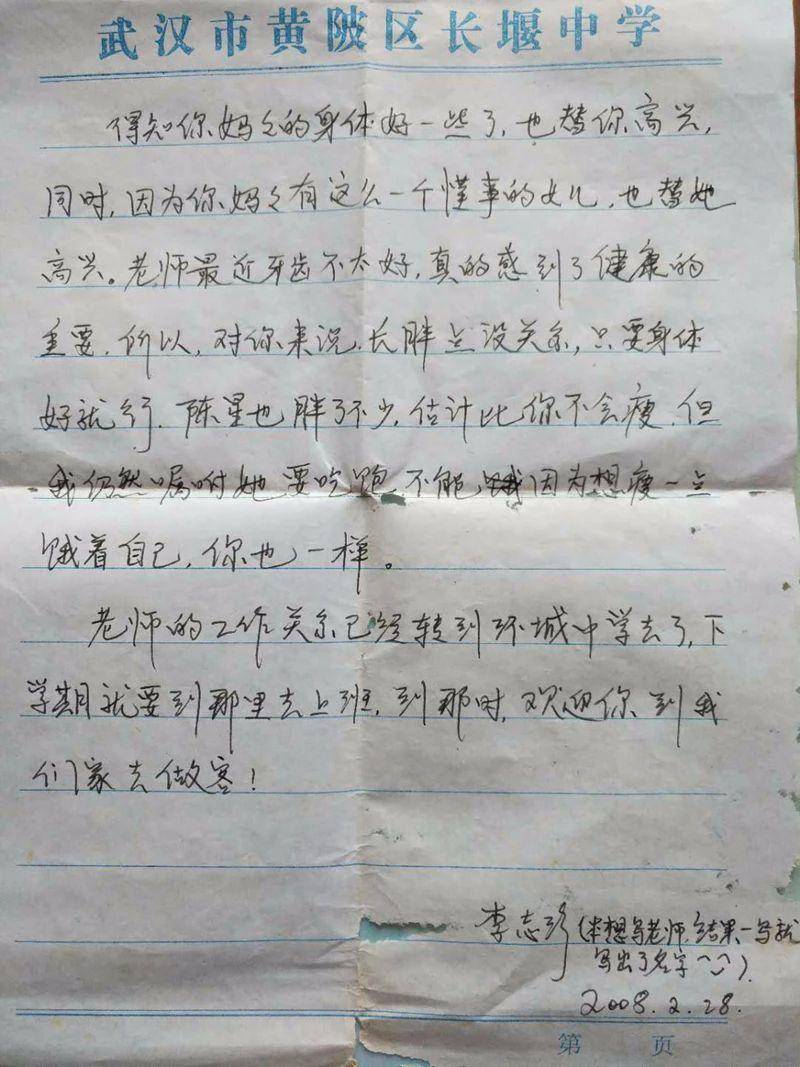 武汉市黄陂区长堰中学
得知你妈々的身体好一些了,也替你高兴,
同时,因为你妈々有这么一个懂事的女儿,也替她
高兴。老师最近牙齿不太好,真的感到了健康的
重要.所以,对你来说,长胖点没关系,只要身体
好就行.陈星也胖了不少,估计比你不会瘦.但
我仍然嘱咐她要吃饱,不能饿因为想瘦一点
饿着自己,你也一样。
老师的工作关系已经转到环城中学去了,下
学期就要到那里去上班,到那时,欢迎你到我
们家去做客!
李志珍(本想写老师,结果一写就
写出了名字^_^).
2008.2.28.
第 页